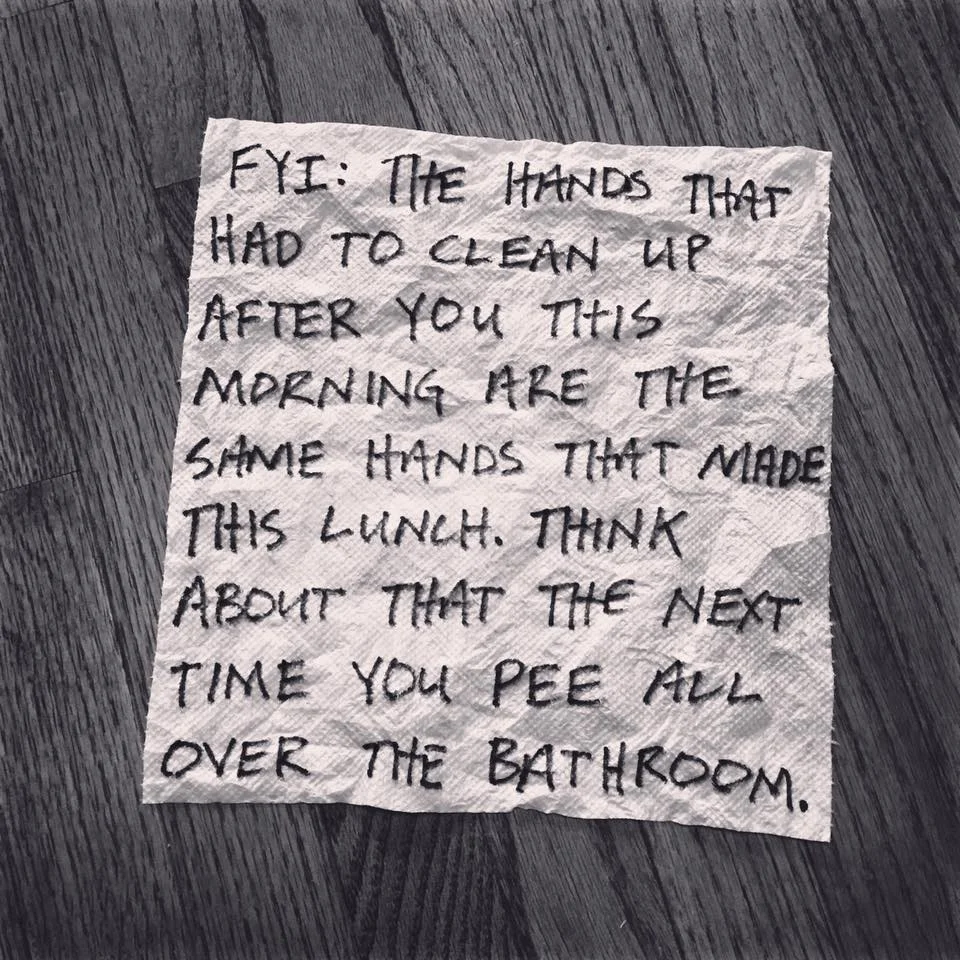 FYI: THE HANDS THAT
HAD TO CLEAN UP
AFTER YOU THIS
MORNING ARE THE
SAME HANDS THAT MADE
THIS LUNCH. THINK
ABOUT THAT THE NEXT
TIME YOU PEE ALL
OVER THE BATHROOM.